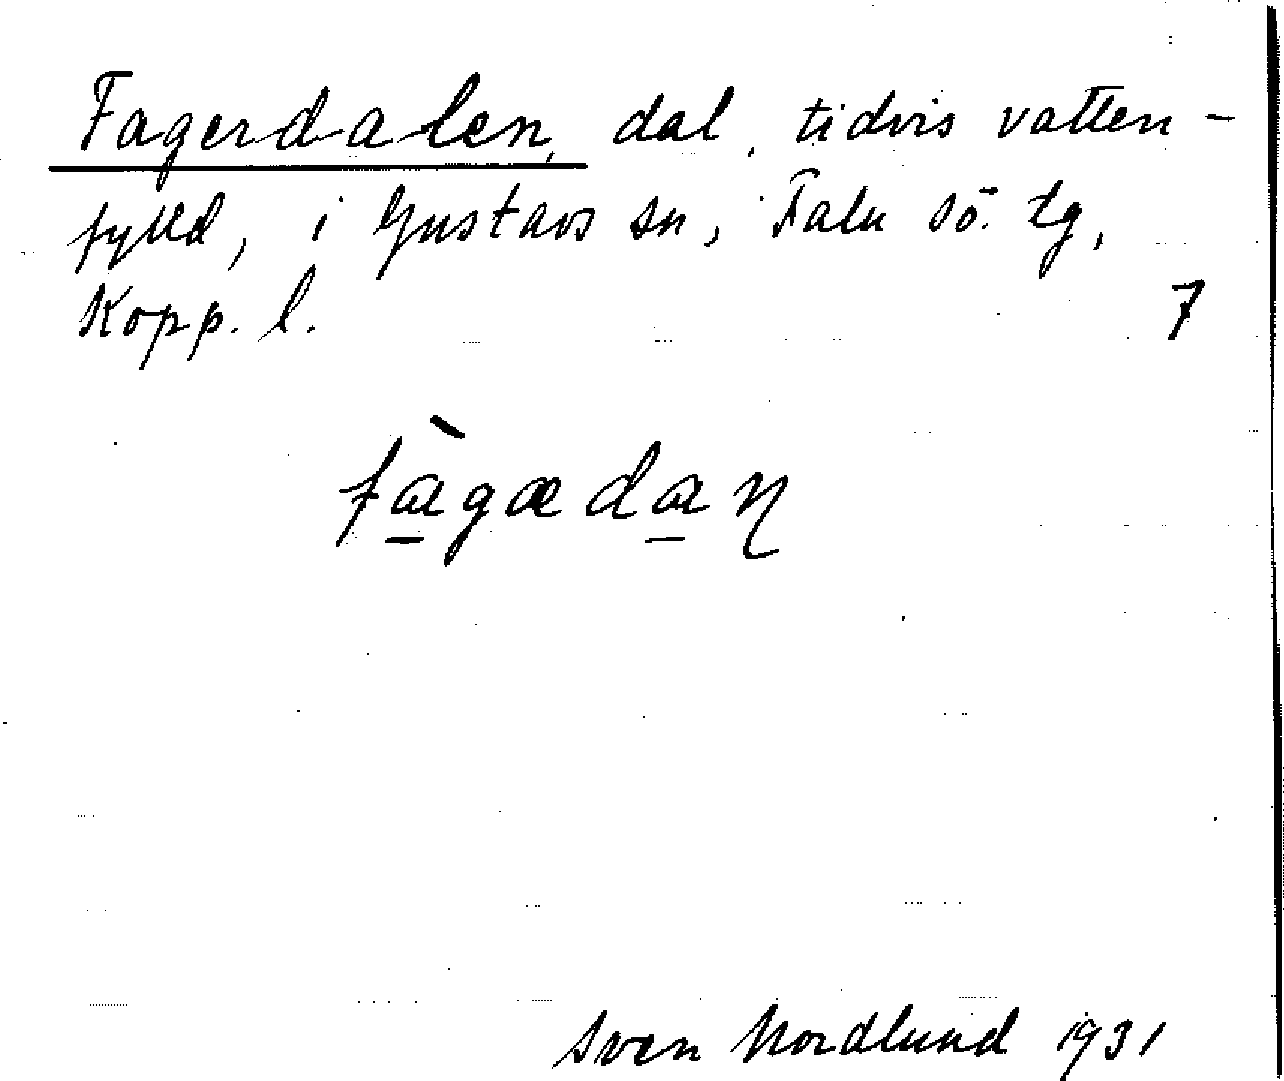 Fagerdalen, dal, tidvis vatten-
fylld, i Gustavs sn, Falu sö. tg,
Kopp. l. 7
fàgædaη
Sven Nordlund 1931